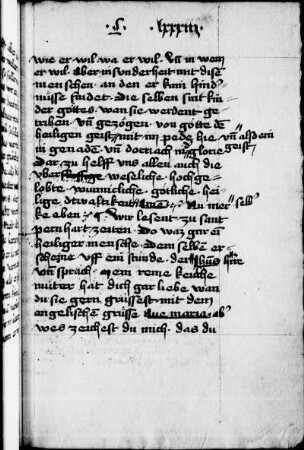 · C · lxxxiiij
wie er wil wa er wil · Vn̄ in wem
er wil · Aber in sunderheit mit dise
menschen · an den er kain hind'
nüsse findet · Die selben sint kin
der gottes · wan sie werdent ge
triben · vn̄ gezogen · von gotte dē
heiligen geist · mit im hie vn̄ als dem
in genaden · vn̄ dort nach in glorie geist
Dar zu helff uns allen auch die
weseliche · hoch ge
lobte · wunnicliche · götliche · hei
lige · driualtikeit Amen · Nu mer
ke eben · ¶ Wir lesent zu sant
pernhart zeiten · Do waz gar ein
heiliger mensche · Dem selben er
scheine vff ein stunde · der
vn̄ sprach · Mein reine keusche
müter hat dich gar liebe wan
du sie gern grüssest mit dem
engelischen grüsse Aue maria · ab'
wes zeichest du mich · das du